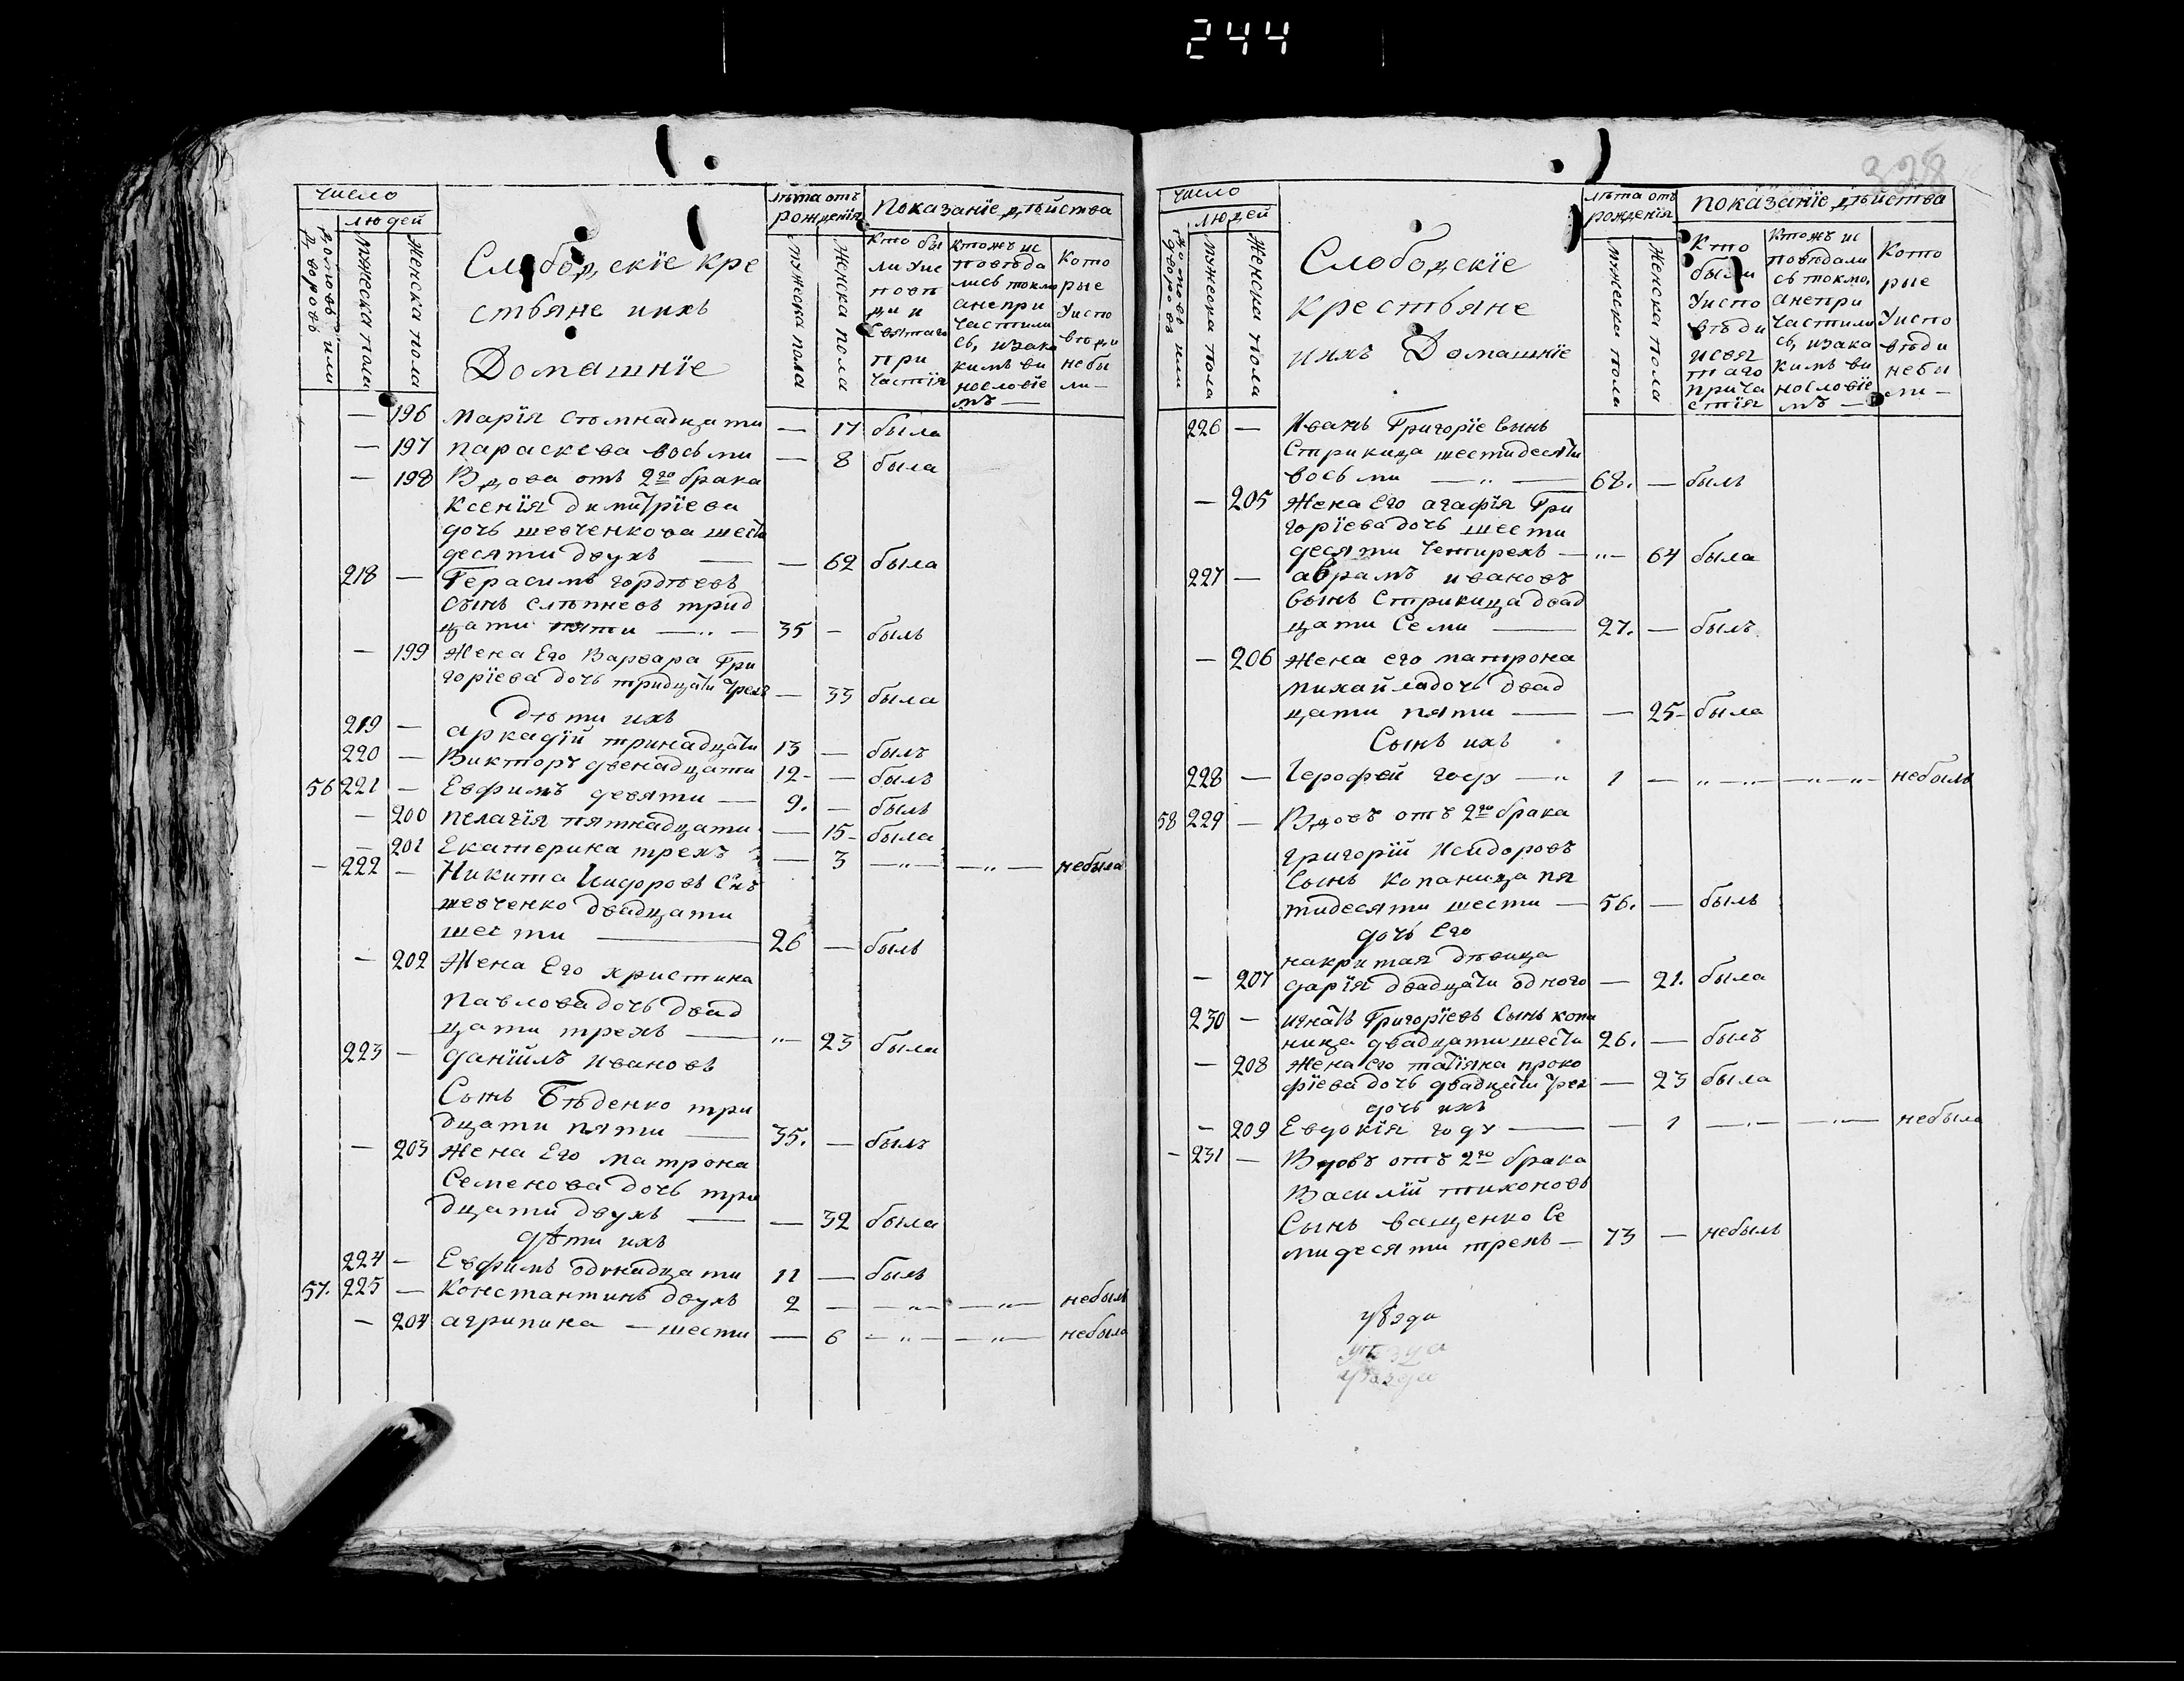 244
число
людей
домовъ или дворовъ
мужеска пола
женска пола
Слободскіе кре
стьяне ихъ
Домашніе
лѣта отъ
рожденія
мужеска пола
женска пола
показаніе дѣйства
Кто бы
ли у ис
повѣ
ди и
святаго
при
частія
Ктожъ ис
повѣда
лись токмо
а непри
частили
сь, и зака
кимъ ви
нословіе
мъ —
Кото
рые
у испо
вѣди
небы
ли —
— 196 марія стомнадцати — 17 была
— 197 параскева восьми — 8 была
— 198 Вдова отъ 2го брака
ксенія димитріева
дочь шевченкова шесть
десяти двухъ — — 62 была
218 — Герасимъ гордѣевъ
сынъ слѣпневъ трид
цати пяти — „ — 35 — былъ
— 199 жена Его Варвара Гри
горіева дочь тридцати трехъ — 33 была
дѣти ихъ
219 — аркадій тринадцати 13 — былъ
220 — Викторъ двенадцати 12 — былъ
56 221 — Евфимъ девяти — 9. — былъ
— 200 пелагія пятнадцати — 15 — была
— 201 Екатерина трехъ — 3 — „ — — „ — небыла
— 222 — Никита Исидоровъ Снъ
шевченко двадцати
шести — 26 — былъ
— 202 Жена Его христина
павлова дочь двад
цати трехъ — „ — 23 была
223 — даніилъ Ивановъ
Сынъ Бѣденко три
дцати пяти — 35. — былъ
— 203 жена Его матрона
Семенова дочь три
дцати двухъ — — 32 была
дѣти ихъ
224 — Евфимъ одинадцати 11 — былъ
57. 225 — Константинъ двухъ 2 — — „ — — „ — небылъ
— 204 агрипина — шести — 6 — „ — — „ — небыла
338
число
людей
домовъ или дворовъ
мужеска пола
женска пола
Слободскіе
крестьяне
ихъ Домашніе
лѣта отъ
рожденія
мужеска пола
женска пола
показаніе дѣйства
Кто
были
у испо
вѣди
и свя
таго
прича
стія
Ктожъ ис
повѣдали
сь токмо,
а непри
частили
сь, и зака
кимъ ви
нословіе
мъ —
Кото
рые
у испо
вѣди
небы
ли —
226 — Иванъ Григоріевъ сынъ
Стрикица шестидесяти
восьми — „ — 68. — былъ
— 205 жена Его агафія Гри
горіева дочь шести
десяти четирехъ — „ — 64 была
227 — аврамъ ивановъ
сынъ Стрикица двад
цати Семи — 27. — былъ.
— 206 жена его матрона
михайла дочь двад
цати пяти — — 25 — была
Сынъ ихъ
228 — Іерофей году — „ 1 — „ — „ — — „ — „ — небылъ
58 229 — Вдовъ отъ 2го брака
григорій Исидоровъ
Сынъ копаница пя
тидесяти шести — 56. — былъ
дочь Его
накритая дѣвица
— 207 дарія двадцати одного — 21. была
230 — игнатъ Григоріевъ Сынъ копа
ница двадцати шести 26. — былъ
— 208 жена его татіяна проко
фіева дочь двадцати трех — 23 была
дочь ихъ
— 209 Евдокія году — — 1 — „ — — „ — небыла
— 231 — Вдовъ отъ 2го брака
Василій тихоновъ
Сынъ ващенко Се
мидесяти трехъ — 73 — небылъ
уѣзди